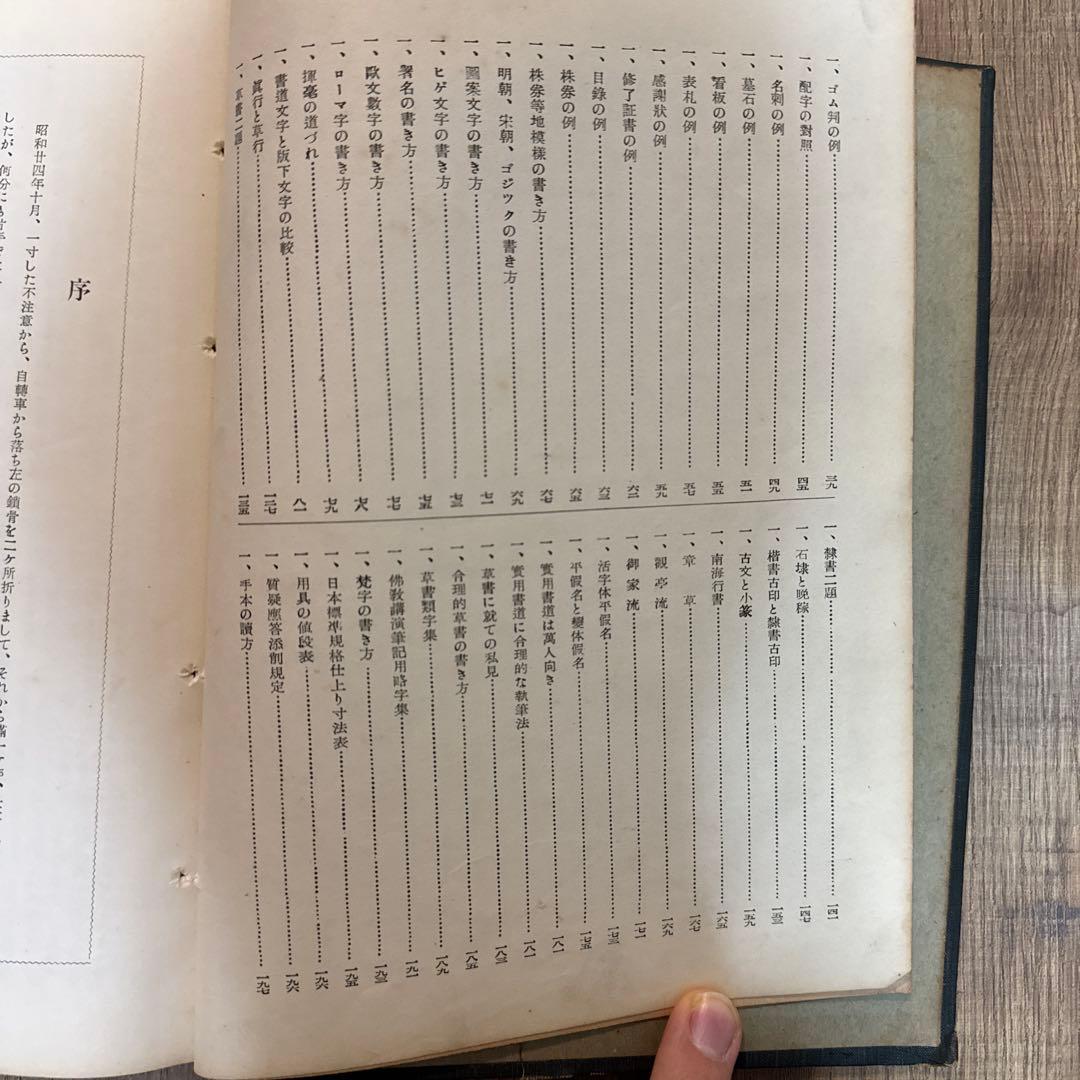 一、ゴム判の例………三九
一、配字の對照………四五
一、名刺の例………四九
一、墓石の例………五一
一、看板の例………五五
一、表札の例………五七
一、感謝狀の例………五九
一、修了証書の例………六一
一、目錄の例………六三
一、株券の例………六五
一、株券等地模樣の書き方………六七
一、明朝、宋朝、ゴジツクの書き方………六九
一、圖案文字の書き方………七一
一、ヒゲ文字の書き方………七三
一、署名の書き方………七五
一、歐文數字の書き方………七七
一、ローマ字の書き方………七八
一、揮毫の道づれ………七九
一、書道文字と版下文字の比較………八一
一、眞行と草行………一二七
一、草書二題………一三五
一、隸書二題………一四一
一、石埭と晩稼………一四七
一、楷書古印と隸書古印………一五三
一、古文と小篆………一五九
一、南海行書………一六五
一、章草………一六七
一、觀亭流………一六九
一、御家流………一七一
一、活字体平假名………一七三
一、平假名と變体假名………一七五
一、實用書道は萬人向き………一八一
一、實用書道に合理的な執筆法………一八一
一、草書に就ての私見………一八三
一、合理的草書の書き方………一八五
一、草書類字集………一八九
一、佛敎講演筆記用略字集………一九一
一、梵字の書き方………一九三
一、日本標準規格仕上り寸法表………一九五
一、用具の値段表………一九六
一、質疑應答添削規定………一九六
一、手本の讀方………一九七
序
昭和廿四年十月、一寸した不注意から、自轉車から落ち左の鎖骨を二ケ所折りまして、それから滿一
したが、何分に